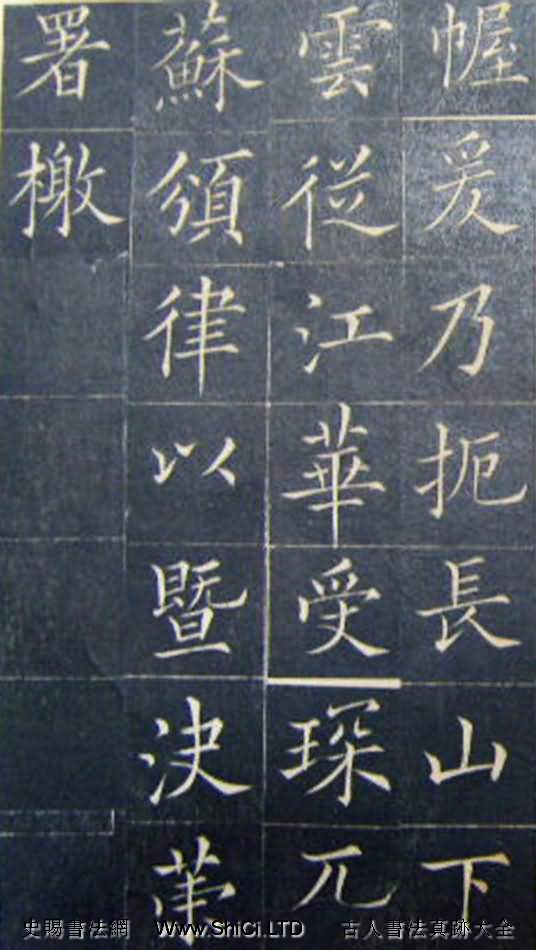 幄爰乃扼長山下
雲從江華受琛兀
蘇頒律以暨決
署檄
史賜書法網 www.ShiCi.LTD 古人書法真跡大全